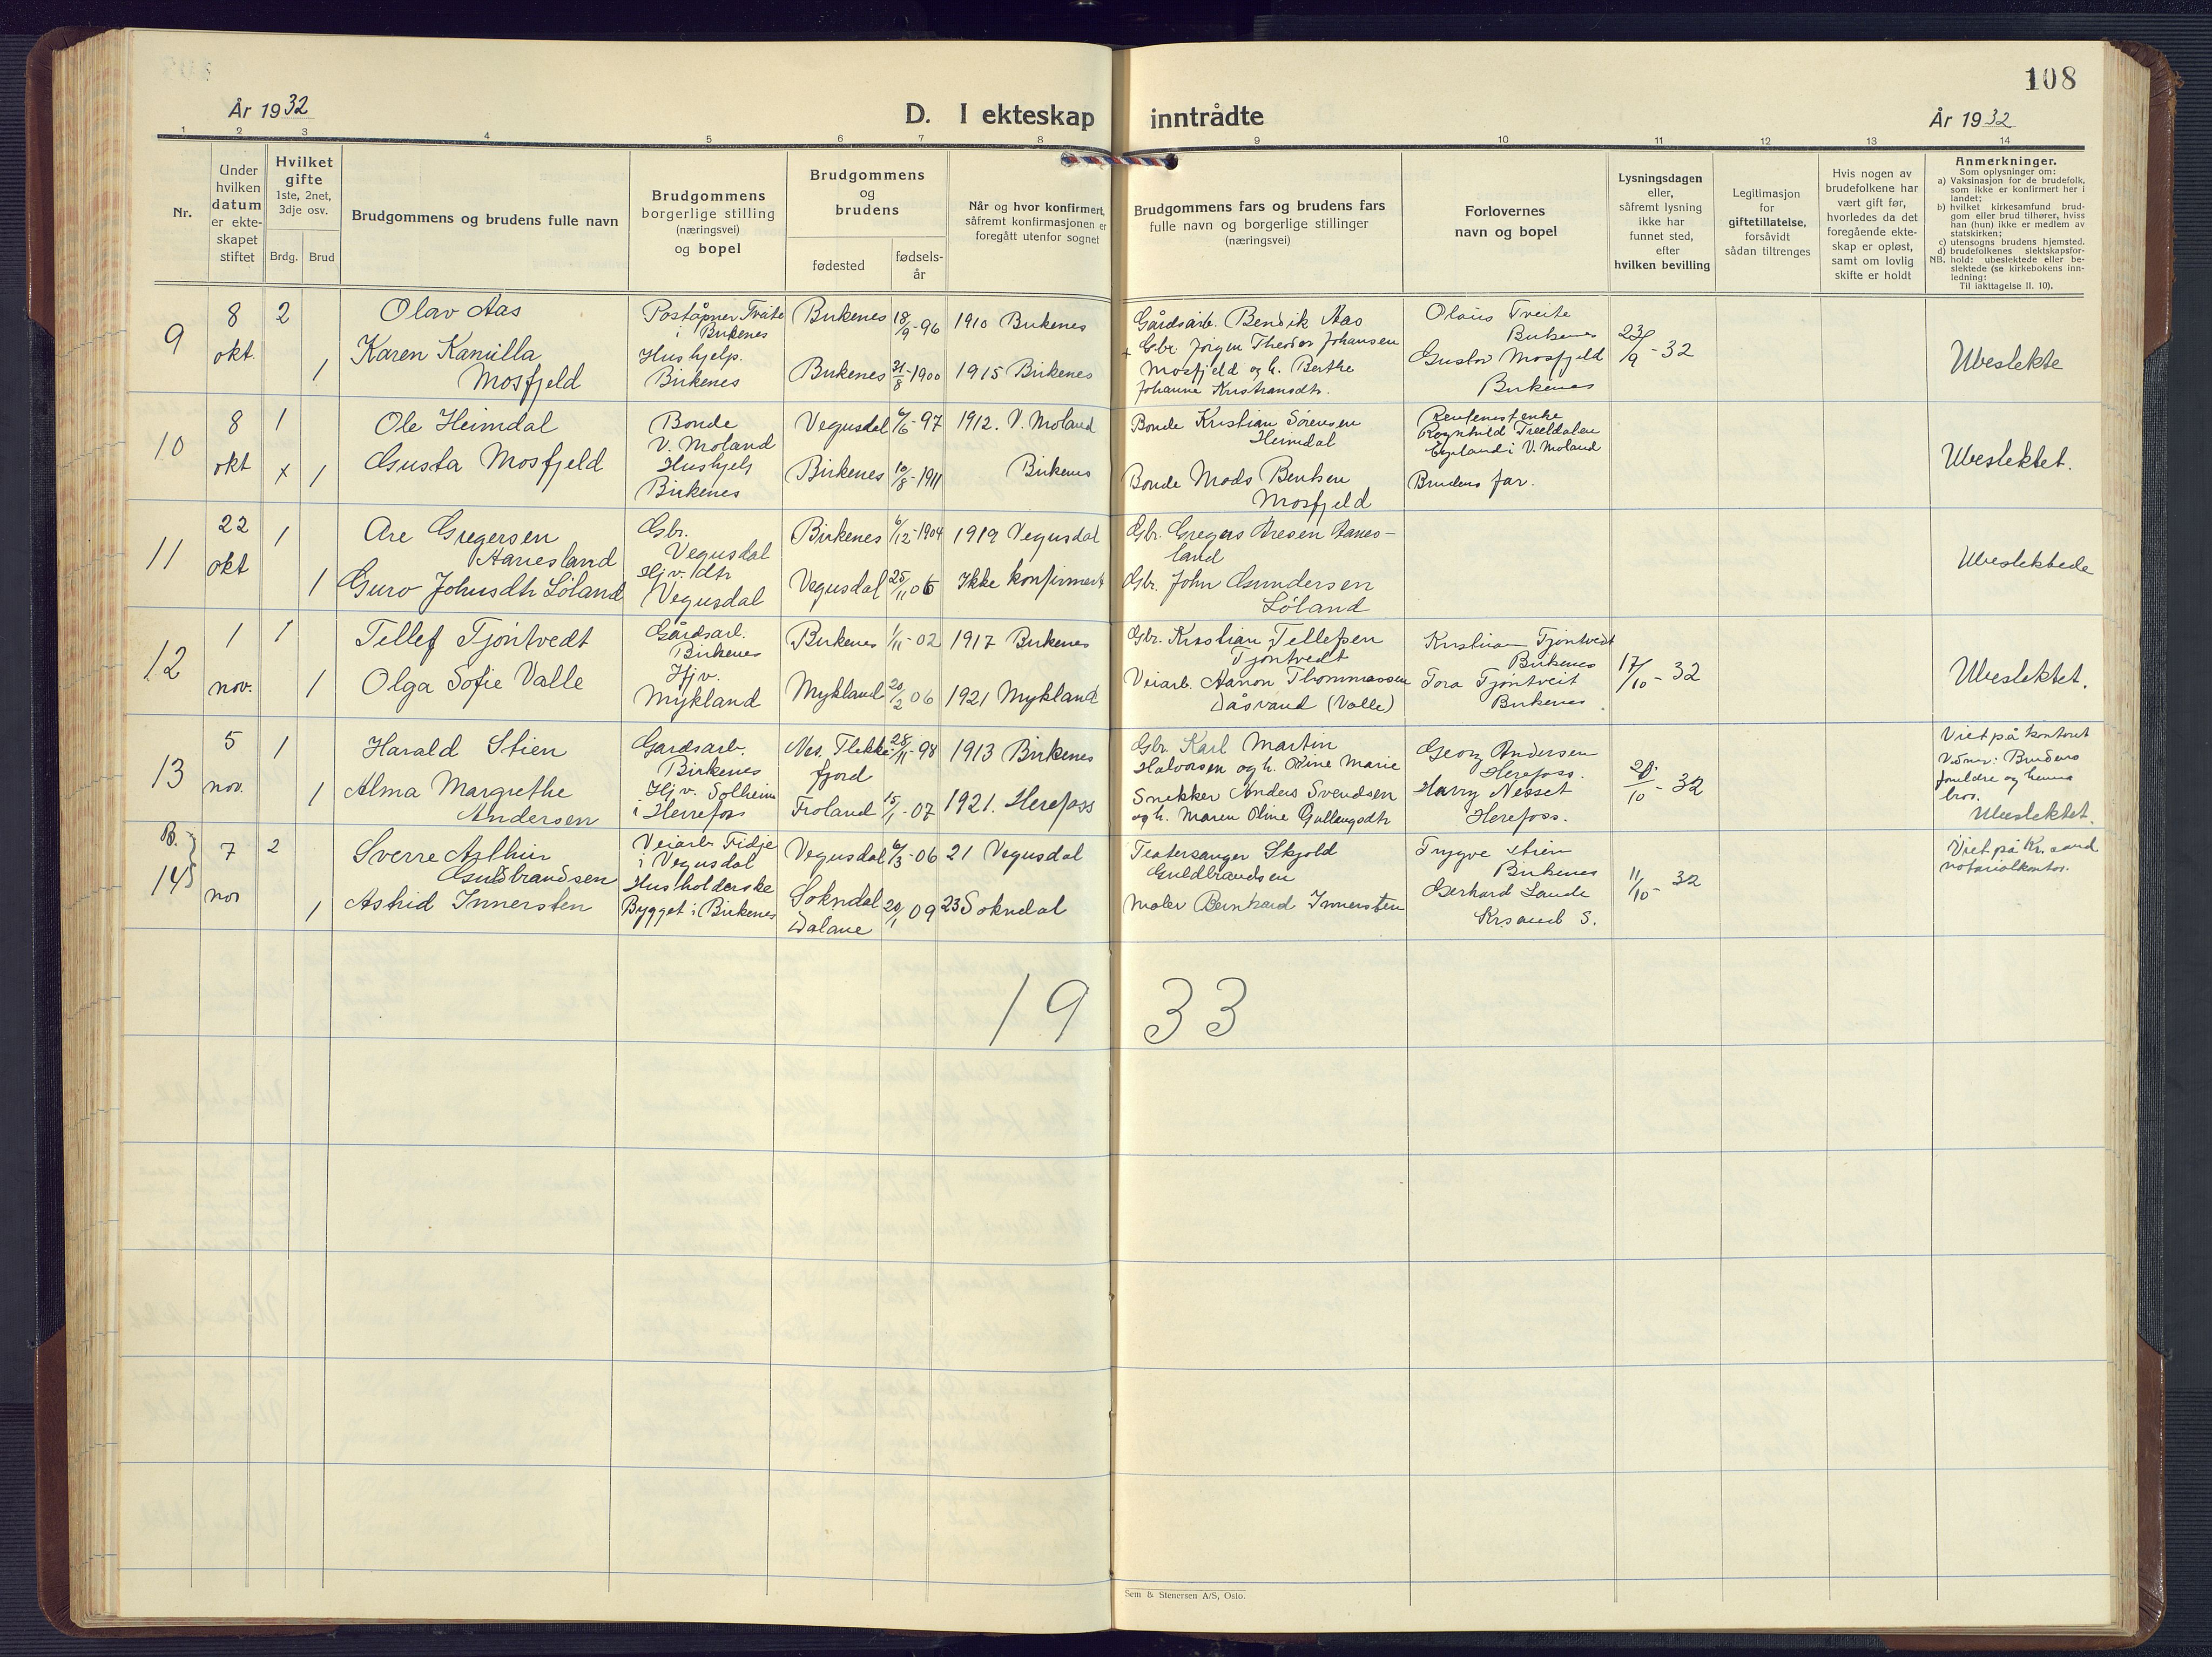 108
År 1932
D. I ekteskap inntrådte
År 1932
1 2 3 4 5 6 7 8 9 10 11 12 13 14
Nr.
Under hvilken datum er ekteskapet stiftet
Hvilket gifte
1ste, 2net, 3dje osv.
Brdg. Brud
Brudgommens og brudens fulle navn
Brudgommens borgerlige stilling (næringsvei) og bopel
Brudgommens og brudens
fødested
fødselsår
Når og hvor konfirmert, såfremt konfirmasjonen er foregått utenfor sognet
Brudgommens fars og brudens fars fulle navn og borgerlige stillinger (næringsvei)
Forlovernes navn og bopel
Lysningsdagen eller, såfremt lysning ikke har funnet sted, efter hvilken bevilling
Legitimasjon for giftetillatelse, forsåvidt sådan tiltrenges
Hvis nogen av brudefolkene har vært gift før, hvorledes da det foregående ekteskap er opløst, samt om lovlig skifte er holdt
Anmerkninger.
Som oplysninger om:
a) Vaksinasjon for de brudefolk, som ikke er konfirmert her i landet;
b) hvilket kirkesamfund brudgom eller brud tilhører, hviss han (hun) ikke er medlem av statskirken;
c) utensogns brudens hjemsted.
d) brudefolkenes slektskapsfor-
NB. hold: ubeslektede eller beslektede (se kirkebokens innledning:
Til iakttagelse II. 10).
9
8 okt.
2
Olav Aas
Poståpner Tveite
i Birkenes
Birkenes
18/9-96
1910 Birkenes
Gårdsarb. Bendik Aas
Olaus Tveite
Birkenes
23/9-32
1
Karen Kamilla
Mosfjeld
Hushjelp.
Birkenes
Birkenes
31/8-1900
1915 Birkenes
+ Gbr. Jørgen Theodor Johansen
Mosfjeld og h. Berthe
Johanne Kristiansdtr.
Gustav Mosfjeld
Birkenes
Ubeslekte
10
8 okt
1
Ole Heimdal
Bonde
V. Moland
Vegusdal
6/6-97
1912. V. Moland
Bonde Kristian Sørensen
Heimdal
England i V. Moland
x 1
Gusta Mosfjeld
Hushjelp
Birkenes
Birkenes
10/8-1911
Birkenes
Bonde Mads Bentsen
Mosfjeld
Brudens far.
Ubeslektet.
11
22 okt
1
Are Gregersen
Aanesland
Gbr.
Vegusdal
Birkenes
6/12-1904
1919 Vegusdal
Gbr. Gregers Aresen Aanes-
land
1
Guro Johnsdtr Løland
Hjv. dtr
Vegusdal
Vegusdal
25/11 06
Ikke konfirmert
Gbr. John Gundersen
Løland
Ubeslektede
12
1 nov.
1
Tellef Tjøntvedt
Gårdsarb.
Birkenes
Birkenes
1/11-02
1917 Birkenes
Gbr. Kristian Tellefsen
Tjøntvedt
Kristian Tjøntvedt
Birkenes
17/10-32
1
Olga Sofie Valle
Hjv.
Mykland
Mykland
20/2 06
1921 Mykland
Veiarb. Aanon Thommassen
Dåsvand (Valle)
Tora Tjøntveit
Birkenes.
Ubeslektet.
13
5 nov.
1
Harald Stien
Gardsarb.
Birkenes
Nes. Flekke-
fjord
28/11-98
1913 Birkenes
Gbr. Karl Martin
Halvorsen og h. Oline Marie
Georg Andersen
Herefoss.
10-32
Viet på kontoret
Vidner: Brudens
foreldre og hennes
bror.
1
Alma Margrethe
Andersen
Hjv. Solheim
i Herefoss
Froland
15/1-07
1921. Herefoss
Snikker Anders Svendsen
og h. Maren Oline Gullaugsdtr
Harry Nesset
Herefoss.
Ubeslektet.
B.
14
7 nov
2
Sverre Arthur
Guldbrandsen
Veiarb. Fidje
i Vegusdal
Vegusdal
6/3-06
21 Vegusdal
Teatersanger Skjold
Guldbrandsen
Trygve Stien
Birkenes
11/10-32
Viet på Kr.sand
notarialkontor.
1
Astrid Innersten
Husholderske
Bygget i Birkenes
Sokndal
Dalane
20/1 09
23 Sokndal
Maler Bernhard Innersten
Gerhard Lande
Krsand S.
1933
Sem & Stenersen A/S, Oslo.